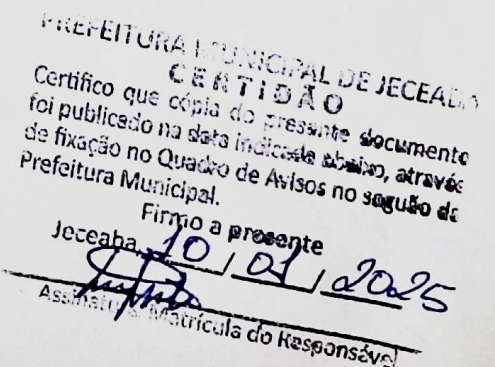 PREFEITURA MUNICIPAL DE JECEABA
CERTIDÃO
Certifico que cópia do presente documento
foi publicado na data indicada abaixo, através
de fixação no Quadro de Avisos no saguão da
Prefeitura Municipal.
Firmo a presente
Jeceaba, 10 / 01 / 2025
Assinatura Matrícula do Responsável